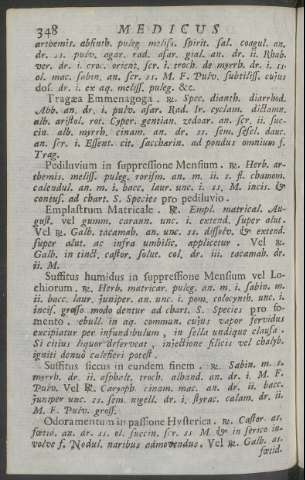 348 MEDICUS
artemis. absinth. puleg. meliss. spirit. sal. coagul. an.
dr. ss. pulv. agar. rad. asar. gial. an. dr. ii. Rhab.
ver. dr. i. croc. orient. scr. i. troch. de myrrh. dr. i. ss.
ol. mac. sabin. an. scr. ss. M. F. Pulv. subtiliss. cujus
dos. dr. i. ex aq. meliss. puleg. &c.
Tragæa Emmenagoga. ℞. Spec. dianth. diarrhod.
Abb. an. dr. i. pulv. asar. Rad. Ir. cyclam. dictamn.
alb. aristol. rot. Cyper. gentian. zedoar. an. scr. ii. succin.
alb. myrrh. cinam. an. dr. ss. sem. sesel. dauc.
an. scr. i. Essent. cit. saccharin. ad pondus omnium f.
Trag.
Pediluvium in suppressione Mensium. ℞. Herb. artemis.
meliss. puleg. rorism. an. m. ii. s. fl. chamom.
calendul. an. m. i. bacc. laur. unc. i. ss. M. incis. &
contus. ad chart. S. Species pro pediluvio.
Emplastrum Matricale. ℞. Empl. matrical. August.
vel gumm. carann. unc. i. extend. super alut.
Vel ℞. Galb. tacamah. an. unc. ss. dissolv. & extend.
super alut. ac infra umbilic. applicetur. Vel ℞.
Galb. in tinct. castor. solut. col. dr. iii. tacamah. dr.
ii. M.
Suffitus humidus in suppressione Mensium vel Lochiorum.
℞. Herb. matricar. puleg. an. m. i. sabin. m.
ii. bacc. laur. juniper. an. unc. i. pom. colocynth. unc. i.
incis. grosso modo dentur ad chart. S. Species pro fomento.
ebull. in aq. commun. cujus vapor fervidus
excipiatur per infundibulum, in sella undique clausa.
Si citius liquor deferveat, injectione silicis vel chalyb.
igniti denuò calefieri potest.
Suffitus siccus in eundem finem. ℞. Sabin. m. s.
myrrh. dr. ii. asphalt. troch. alband. an. dr. i. M. F.
Pulv. Vel ℞. Caryoph. cinam. mac. an. dr. ii. bacc.
juniper unc. ss. sem. nigell. dr. i. styrac. calam. dr. ii.
M. F. Pulv. gross.
Odoramentum in passione Hysterica. ℞. Castor. as.
fœtid. an. dr. ss. ol. succin. scr. ss M. & in serico involve
f. Nodul. naribus admovendus. Vel ℞. Galb. as.
fœtid.